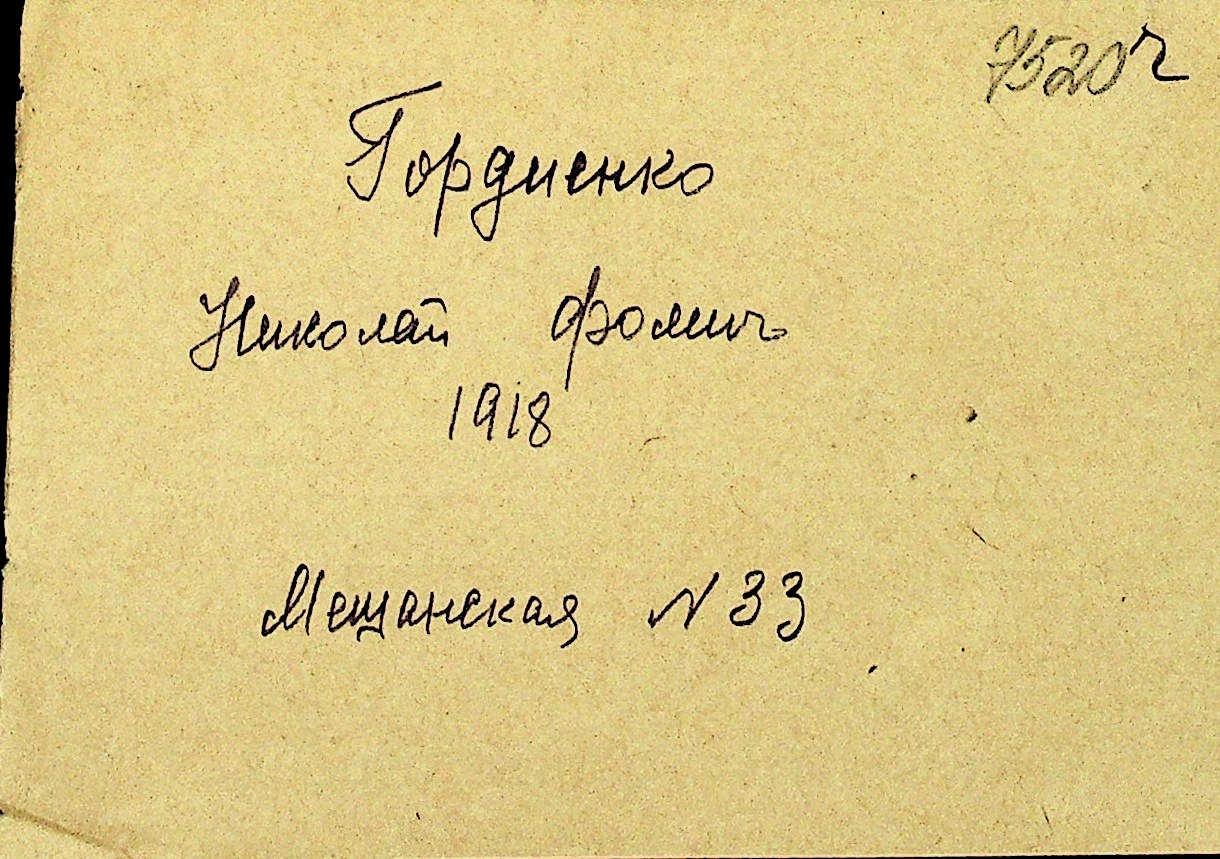 7520 ч
Гордиенко
Николай Фомич
1918
Мещанская N 33